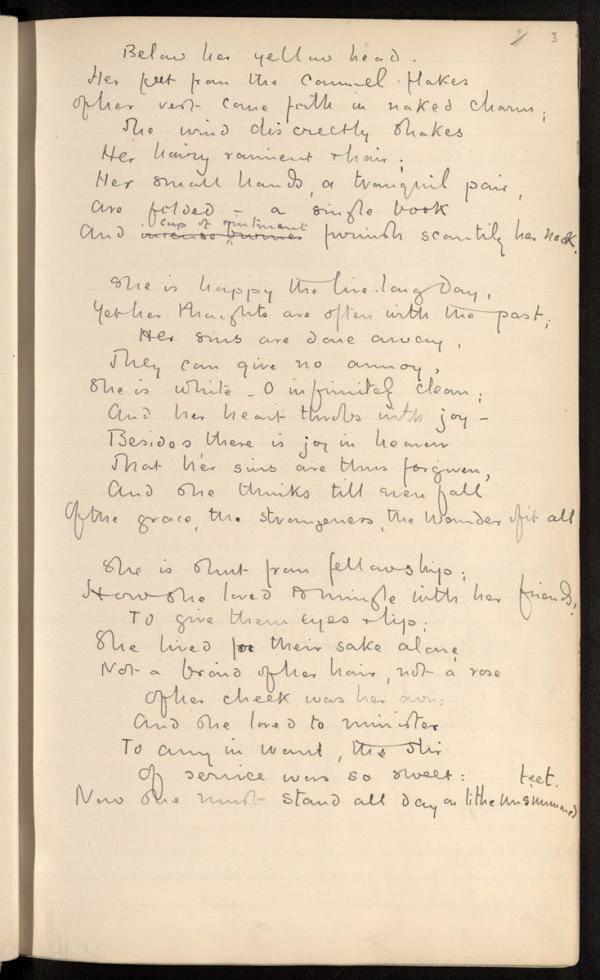 3
Below her yellow head.
Her feet from the cammel-flakes
Of her vest come forth in naked charm;
The wind discreetly shakes
Her hairy raiment & hair;
Her small hands, a tranquil pair,
Are folded – a single book
cup of ointment
And incense burner furnish scantily her nook.
She is happy the live-long day,
Yet her thoughts are often with the past;
Her sins are done away,
They can give no annoy,
She is white – O infinitely clean;
And her heart throbs with joy –
Besides there is joy in heaven
That her sins are thus forgiven,
And she thinks till even fall
Of the grace, the strangeness, the wonder of it all
She is shut from fellowship;
How she loved to mingle with her friends,
To give them eyes & lip;
She lived for their sake alone,
Not a braid of her hair, not a rose
Of her cheek was her own:
And she loved to minister
To any in want, the stir
Of service was so sweet:
Now she must stand all day on lithe unsummoned
feet.